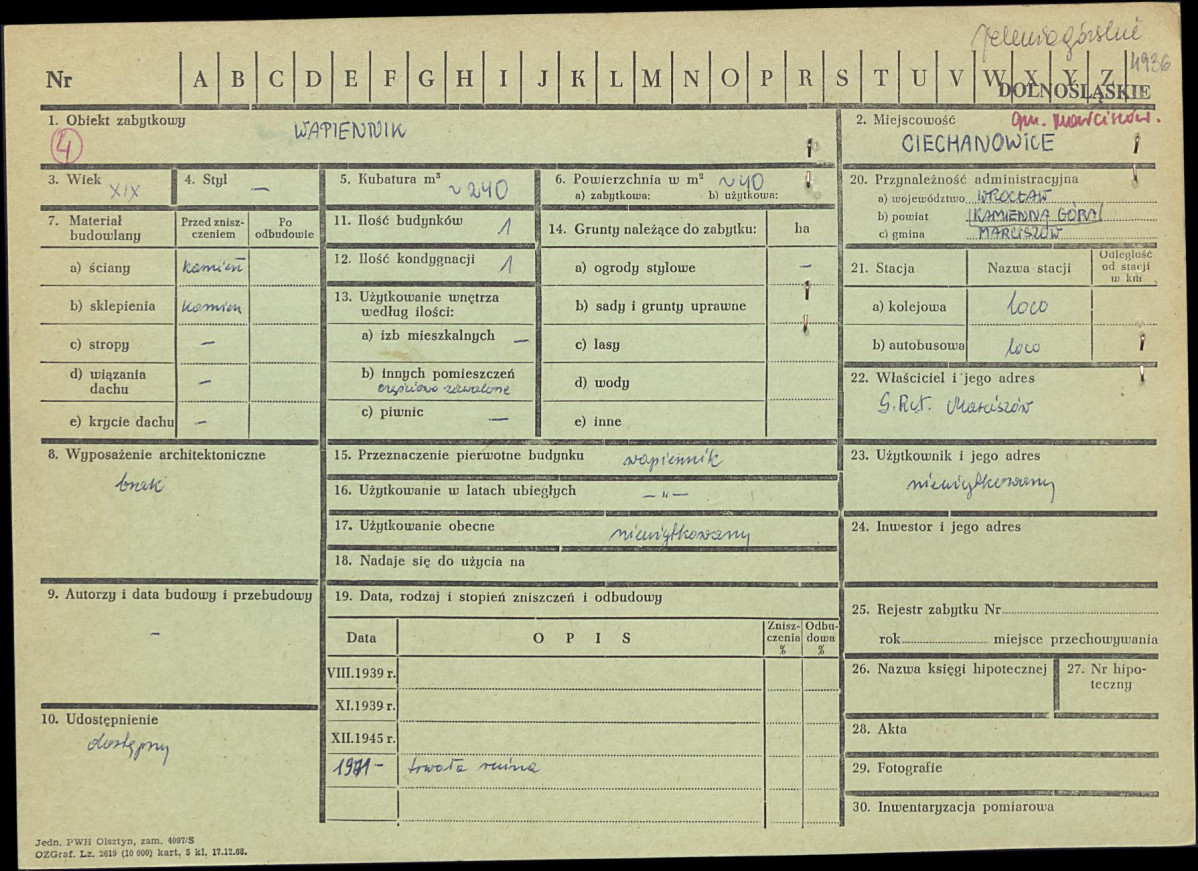 jeleniogórskie
4936
Nr A B C D E F G H I J K L M N O P R S T U V W X Y Z
DOLNOŚLĄSKIE
1. Obiekt zabytkowy WAPIENNIK
4
2. Miejscowość gm. Marciszów.
CIECHANOWICE
3. Wiek XIX
4. Styl —
5. Kubatura m³ ~240
6. Powierzchnia w m² ~40
a) zabytkowa: b) użytkowa:
20. Przynależność administracyjna
a) województwo WROCŁAW
b) powiat KAMIENNA GÓRA
c) gmina MARCISZÓW
7. Materiał budowlany
Przed zniszczeniem
Po odbudowie
a) ściany kamień
b) sklepienia kamień
c) stropy —
d) wiązania dachu —
e) krycie dachu —
11. Ilość budynków 1
12. Ilość kondygnacji 1
13. Użytkowanie wnętrza według ilości:
a) izb mieszkalnych —
b) innych pomieszczeń
częściowo zawalone
c) piwnic —
14. Grunty należące do zabytku: ha
a) ogrody stylowe —
b) sady i grunty uprawne
c) lasy
d) wody
e) inne
21. Stacja
Nazwa stacji
Odległość od stacji w km
a) kolejowa loco
b) autobusowa loco
22. Właściciel i jego adres
Marciszów
8. Wyposażenie architektoniczne
brak
15. Przeznaczenie pierwotne budynku wapiennik
16. Użytkowanie w latach ubiegłych — „ —
17. Użytkowanie obecne nieużytkowany
18. Nadaje się do użycia na
23. Użytkownik i jego adres
nieużytkowany
24. Inwestor i jego adres
9. Autorzy i data budowy i przebudowy
—
10. Udostępnienie
dostępny
19. Data, rodzaj i stopień zniszczeń i odbudowy
Data
O P I S
Zniszczenia %
Odbudowa %
VIII.1939 r.
XI.1939 r.
XII.1945 r.
1971 — trwała ruina
25. Rejestr zabytku Nr
rok miejsce przechowywania
26. Nazwa księgi hipotecznej
27. Nr hipoteczny
28. Akta
29. Fotografie
30. Inwentaryzacja pomiarowa
Jedn. PWH Olsztyn, zam. 4097/S
OZGraf. Lz. 2619 (10 000) kart. 5 kl. 17.12.68.